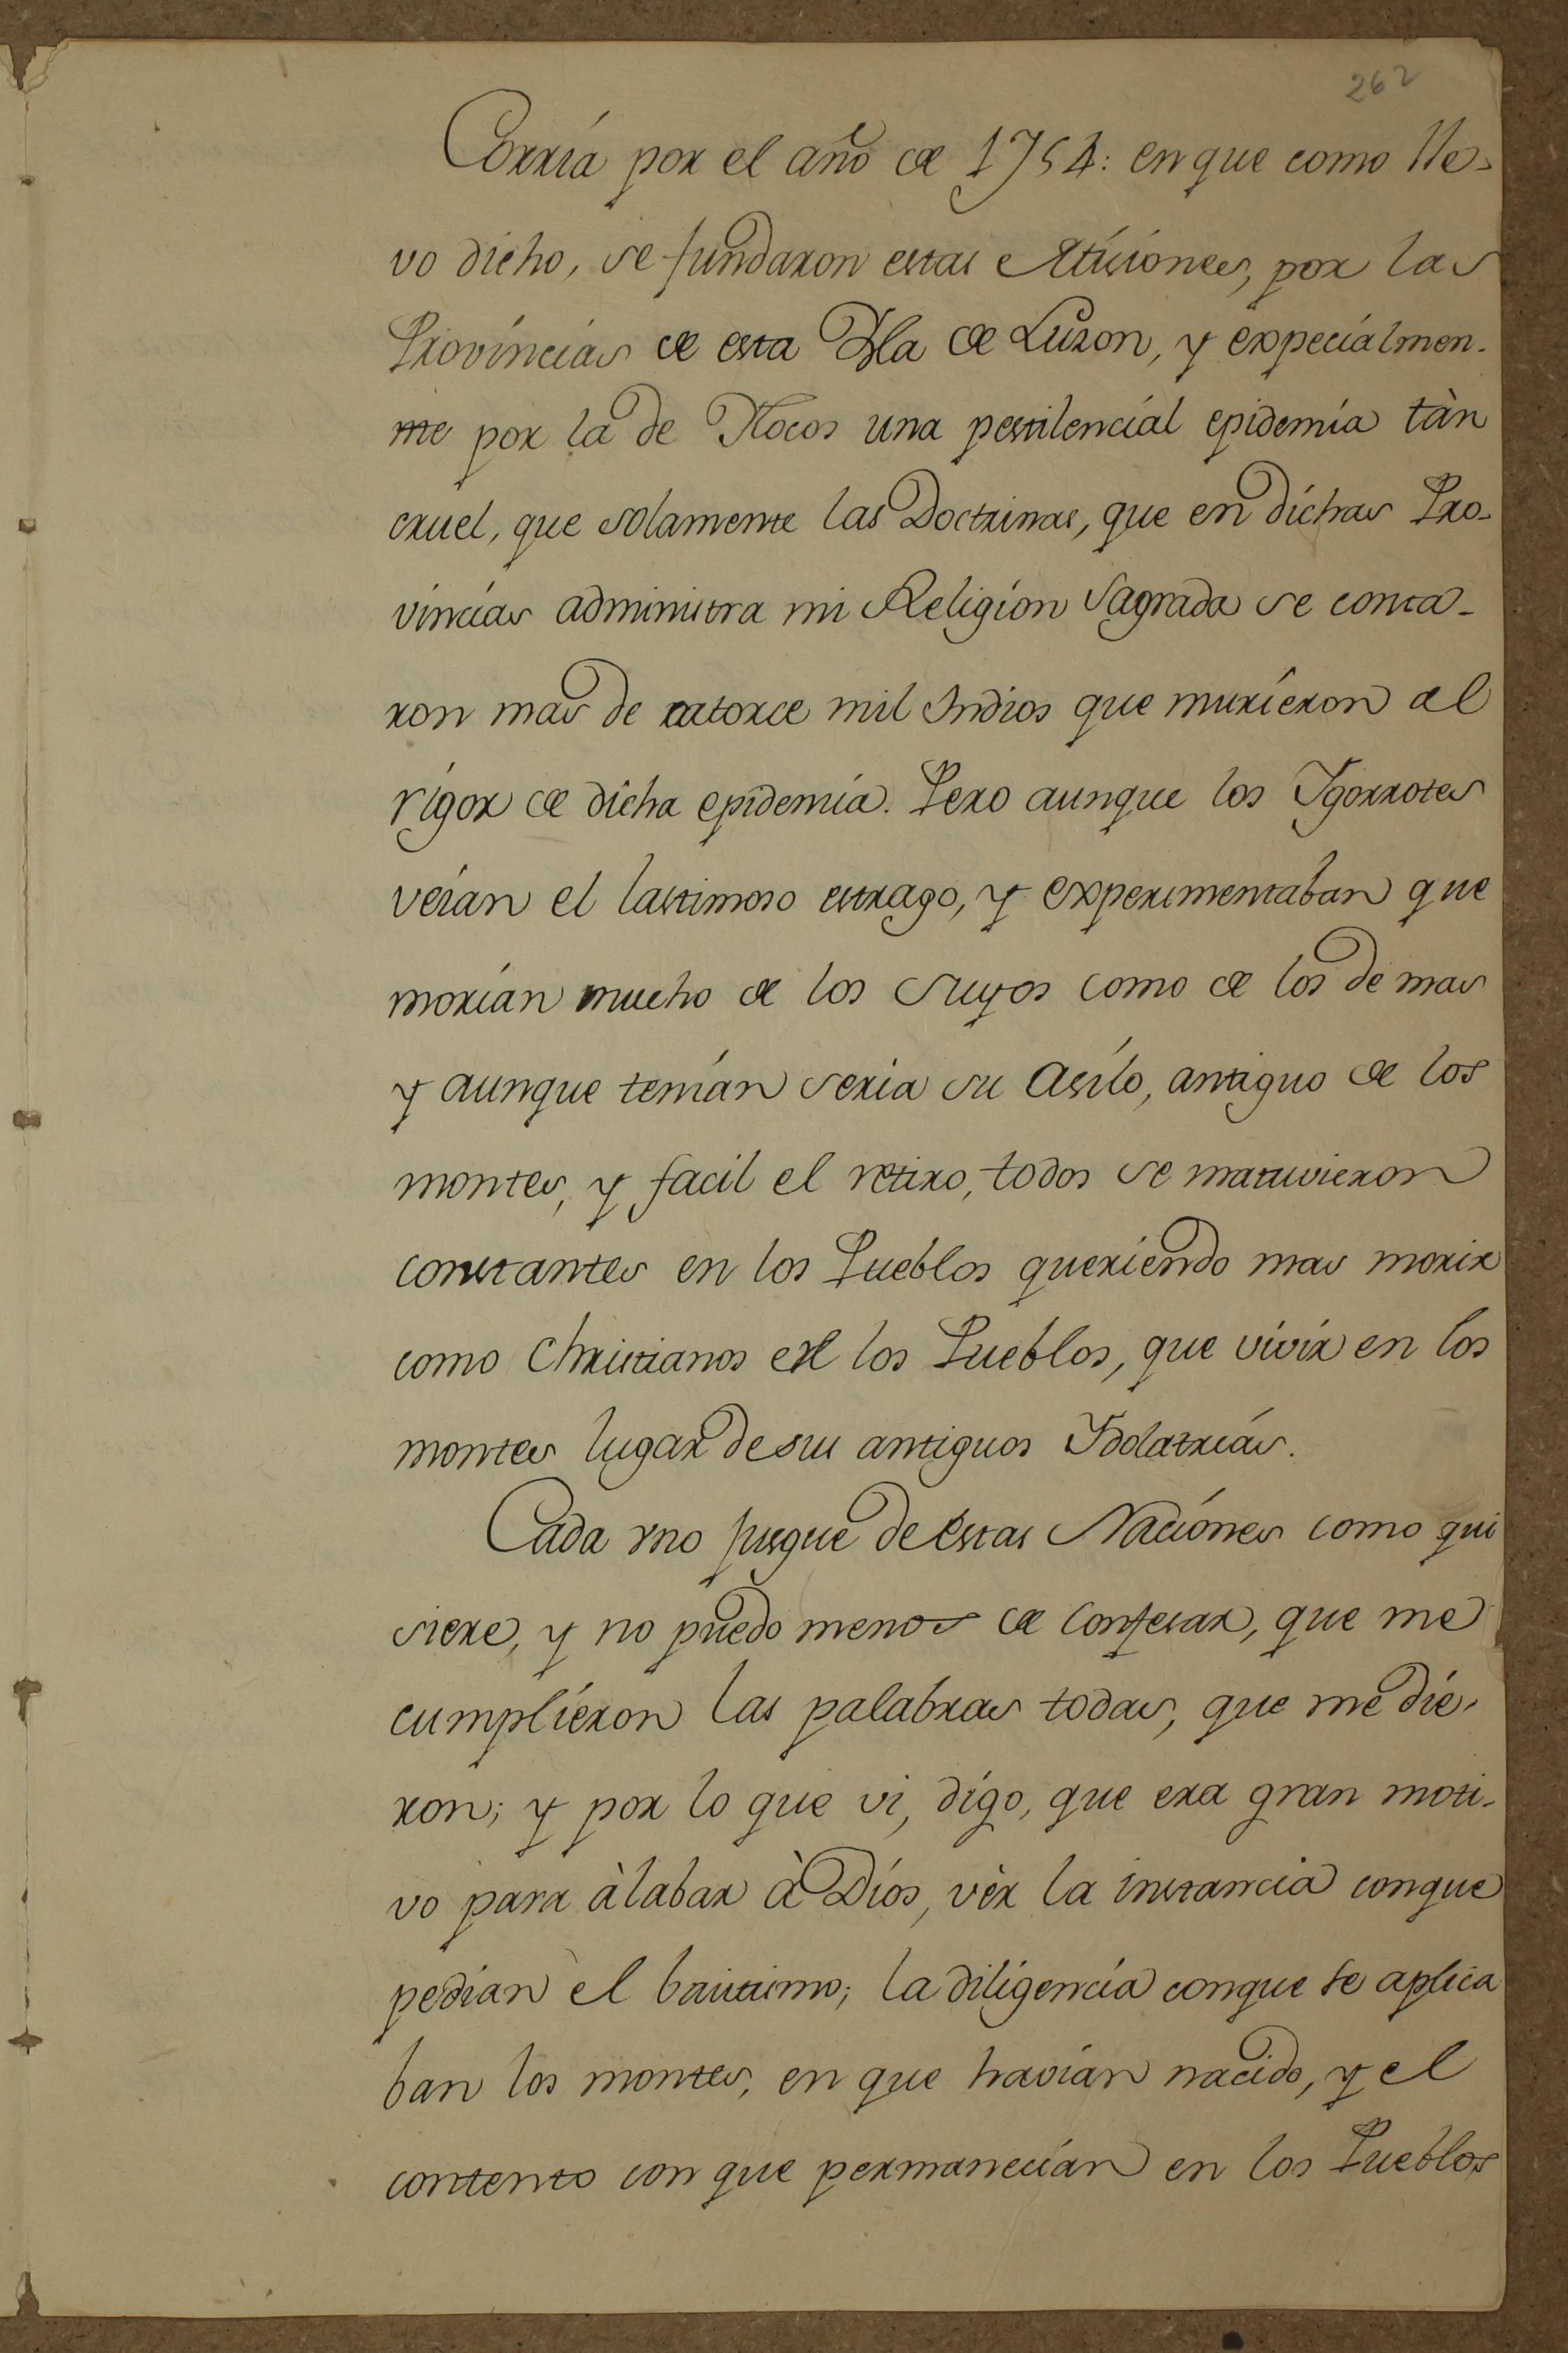 262
Corría por el año de 1754: en que como lle-
vo dicho, se fundaron estas Missiones, por las
Províncías de esta Ysla de Luzon, y expecíalmen-
te por la de Ylocos una pestilencíal epidemía tàn
cruel, que solamente las Doctrinas, que en díchas Pro-
víncías administra mi Relígíon Sagrada se conta-
ron mas de catorce mil Indios que muríeron al
rígor de dícha epídemía. Pero aunque los Ygorrotes
veían el lastimoso estrago, y experimentaban que
morían mucho de los suyos como de los de mas
y aunque temían seria su Asílo, antiguo de los
montes, y facil el retiro, todos se matuvieron
constantes en los Pueblos queríendo mas morir
como Christianos en los Pueblos, que vívír en los
montes lugar de sus antiguos Ydolatrías.
Cada vno jusgue de éstas Nacíónes como qui
siere, y no puedo menos de confesar, que me
cumplíeron las palabras todas, que me díe-
ron; y por lo que vi, dígo, que era gran moti-
vo para àlabar à Díos, vèr la instancia conque
pedían el bautismo; la dilígencía conque se aplica
ban los montes, en que havían nacido, y el
contento con que permanecían en los Pueblos